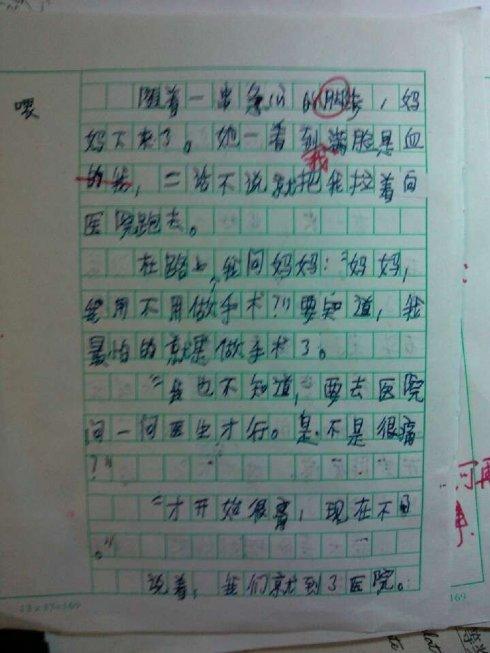 喂
随着一串急切的脚步，妈
妈下来了。她一看到满脸是血
我
的我，二话不说就把我拉着向
医院跑去。
在路上，我问妈妈：“妈妈，
用不用做手术？”要知道，我
最怕的就是做手术了。
“我也不知道，要去医院
问一问医生才行。是不是很痛
？”
“才开始很痛，现在不
。”
说着，我们就到了医院。
可再
事
169